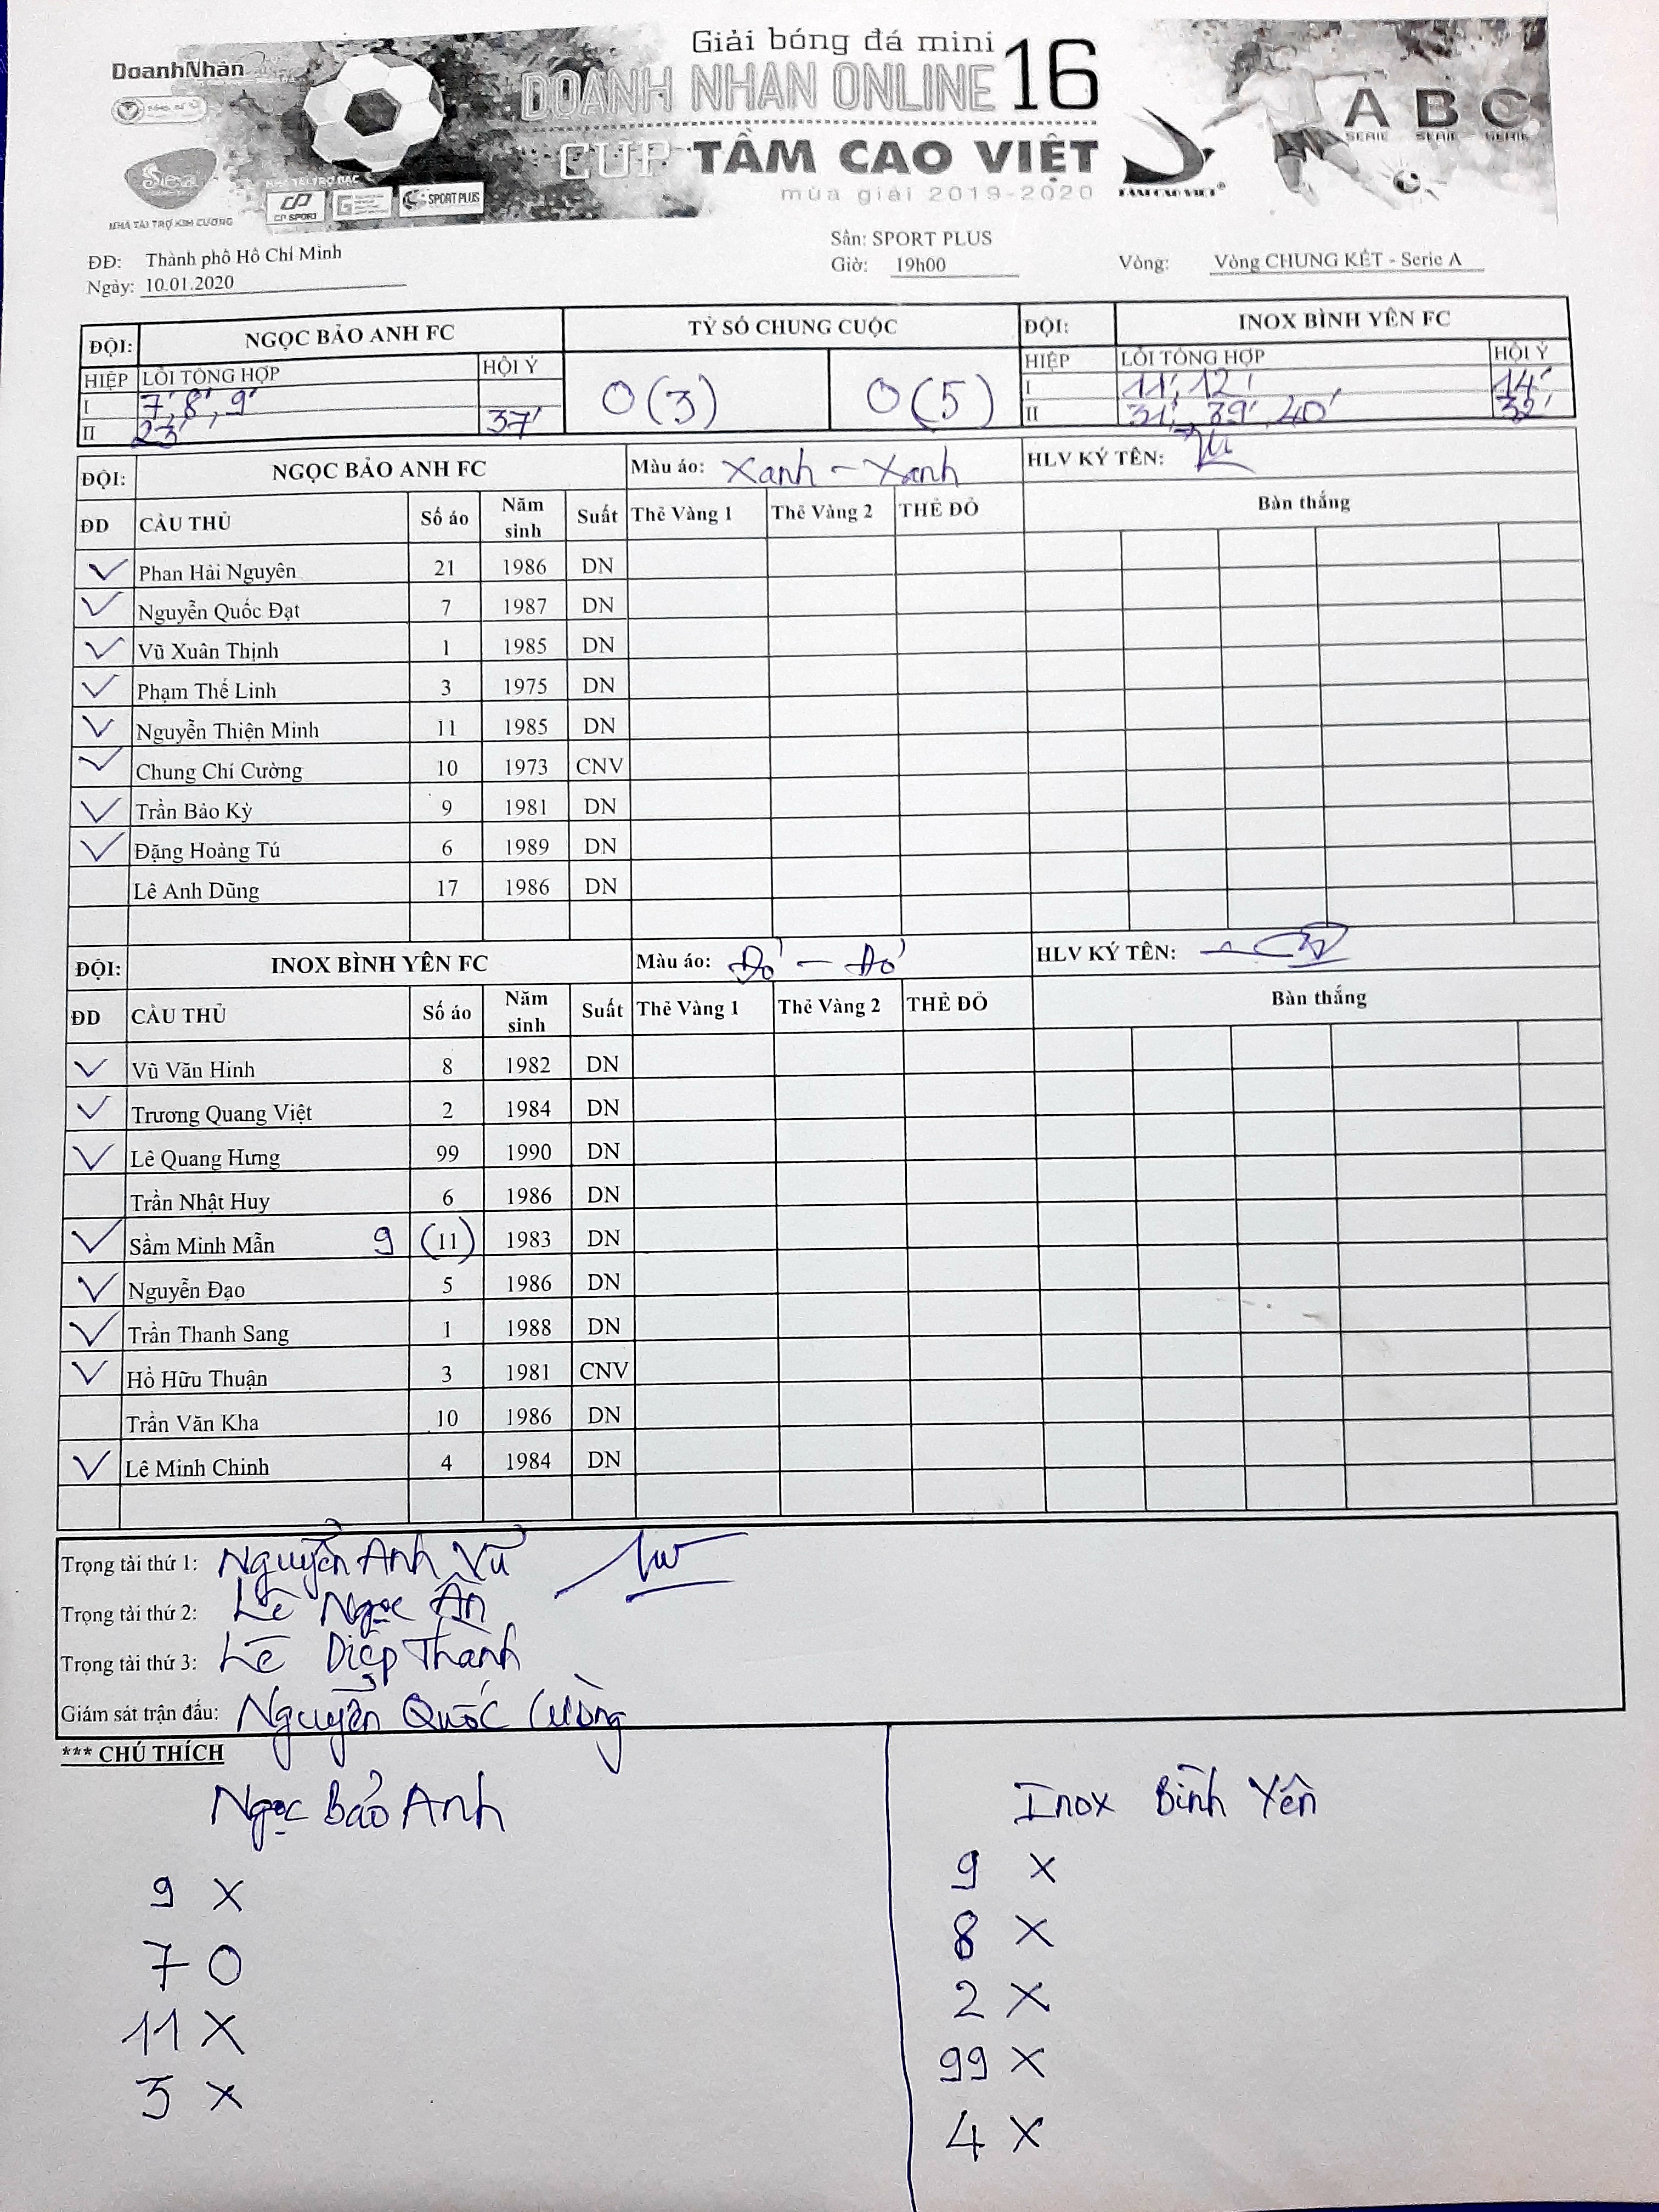 Giải bóng đá mini
DoanhNhân
DOANH NHÂN ONLINE 16
CUP TẦM CAO VIỆT
mùa giải 2019-2020
A B C
SERIE SERIE SERIE
Siena
NHÀ TÀI TRỢ KIM CƯƠNG
NHÀ TÀI TRỢ BẠC
CP SPORT
SPORT PLUS
TẦM CAO VIỆT®
ĐĐ: Thành phố Hồ Chí Minh
Sân: SPORT PLUS
Ngày: 10.01.2020
Giờ: 19h00
Vòng: Vòng CHUNG KẾT - Serie A
ĐỘI: NGỌC BẢO ANH FC TỶ SỐ CHUNG CUỘC ĐỘI: INOX BÌNH YÊN FC
HIỆP LỖI TỔNG HỢP HỘI Ý 0 (3) 0 (5) HIỆP LỖI TỔNG HỢP HỘI Ý
I 7', 8', 9' I 11', 12' 14'
II 23' 37' II 31', 39', 40' 32'
ĐỘI: NGỌC BẢO ANH FC Màu áo: Xanh - Xanh HLV KÝ TÊN:
ĐD CẦU THỦ Số áo Năm sinh Suất Thẻ Vàng 1 Thẻ Vàng 2 THẺ ĐỎ Bàn thắng
Phan Hải Nguyên 21 1986 DN
Nguyễn Quốc Đạt 7 1987 DN
Vũ Xuân Thịnh 1 1985 DN
Phạm Thế Linh 3 1975 DN
Nguyễn Thiện Minh 11 1985 DN
Chung Chí Cường 10 1973 CNV
Trần Bảo Kỳ 9 1981 DN
Đặng Hoàng Tú 6 1989 DN
Lê Anh Dũng 17 1986 DN
ĐỘI: INOX BÌNH YÊN FC Màu áo: Đỏ - Đỏ HLV KÝ TÊN:
ĐD CẦU THỦ Số áo Năm sinh Suất Thẻ Vàng 1 Thẻ Vàng 2 THẺ ĐỎ Bàn thắng
Vũ Văn Hinh 8 1982 DN
Trương Quang Việt 2 1984 DN
Lê Quang Hưng 99 1990 DN
Trần Nhật Huy 6 1986 DN
Sầm Minh Mẫn 9 (11) 1983 DN
Nguyễn Đạo 5 1986 DN
Trần Thanh Sang 1 1988 DN
Hồ Hữu Thuận 3 1981 CNV
Trần Văn Kha 10 1986 DN
Lê Minh Chinh 4 1984 DN
Trọng tài thứ 1: Nguyễn Anh Vũ
Trọng tài thứ 2: Lê Ngọc Ân
Trọng tài thứ 3: Lê Diệp Thanh
Giám sát trận đấu: Nguyễn Quốc Cường
*** CHÚ THÍCH
Ngọc Bảo Anh
9 X
7 O
11 X
3 X
Inox Bình Yên
9 X
8 X
2 X
99 X
4 X